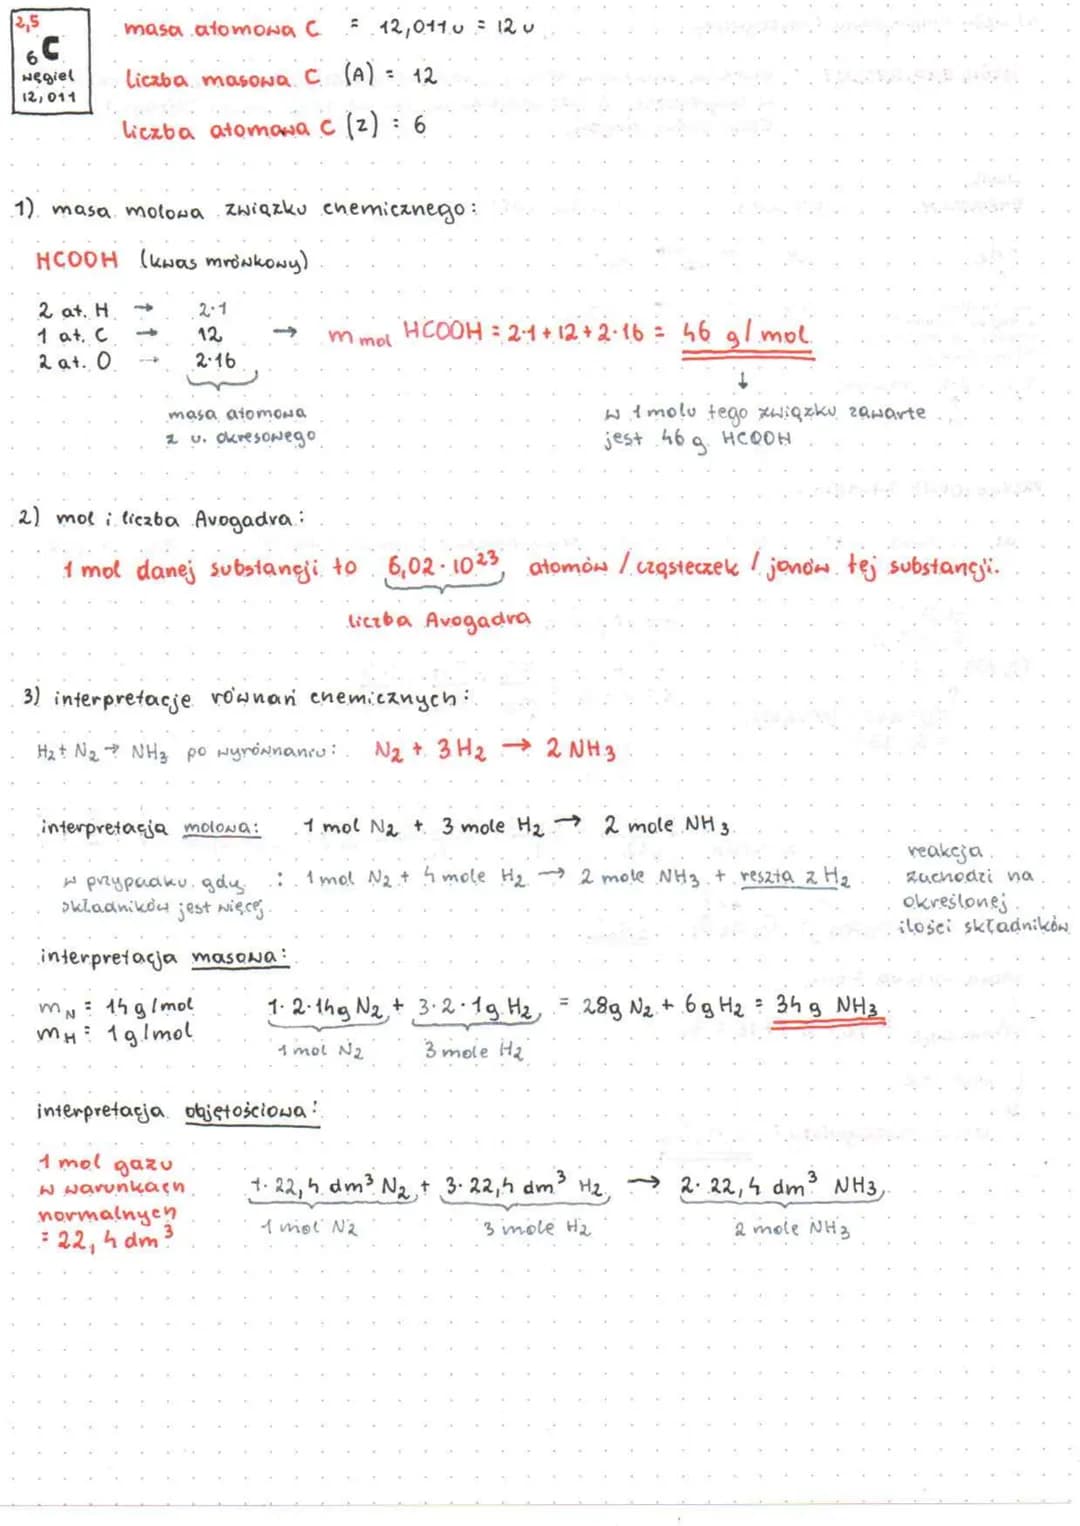 2,5
6 C
węgiel
12,011
masa atomowa C = 12,011 u = 12 u
liczba masowa C (A) = 12
liczba atomowa C (Z) = 6
1) masa molowa związku chemicznego:
HCOOH (kwas mrówkowy)
2 at. H → 2·1
1 at. C → 12 → m mol HCOOH = 2·1 + 12 + 2·16 = 46 g/mol
2 at. O → 2·16
↓
masa atomowa
z u. okresowego
w 1 molu tego związku zawarte
jest 46 g HCOOH
2) mol i liczba Avogadra:
1 mol danej substancji to 6,02·10²³ atomów / cząsteczek / jonów tej substancji.
liczba Avogadra
3) interpretacje równań chemicznych:
H₂ + N₂ → NH₃ po wyrównaniu: N₂ + 3 H₂ → 2 NH₃
interpretacja molowa: 1 mol N₂ + 3 mole H₂ → 2 mole NH₃
w przypadku gdy
składników jest więcej : 1 mol N₂ + 4 mole H₂ → 2 mole NH₃ + reszta z H₂
reakcja
zachodzi na
określonej
ilości składników
interpretacja masowa:
m N = 14 g/mol
m H = 1 g/mol
1·2·14g N₂ + 3·2·1g H₂ = 28g N₂ + 6g H₂ = 34 g NH₃
1 mol N₂ 3 mole H₂
interpretacja objętościowa:
1 mol gazu
w warunkach
normalnych
= 22,4 dm³
1·22,4 dm³ N₂ + 3·22,4 dm³ H₂ → 2·22,4 dm³ NH₃
1 mol N₂ 3 mole H₂ 2 mole NH₃